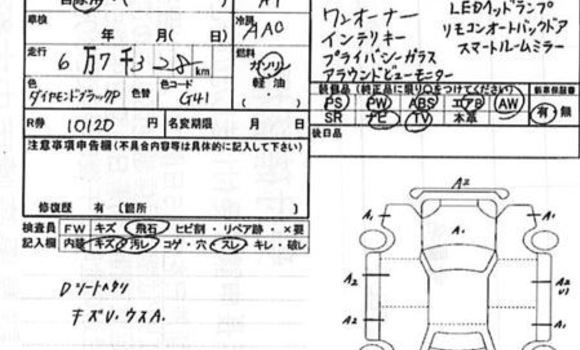 自家用 AT
車検 年 月(日)
冷房 AAC
走行 6万7千328km
燃料 ガソリン 軽油
色 ダイヤモンドブラックP 色替 色コード G41
R券 10120円 名変期限 月 日
注意事項申告欄(不具合内容等は具体的に記入して下さい)
修復歴 有 〔箇所
検査員 FW キズ・飛石・ヒビ割・リペア跡・×要
記入欄 内装 キズ・汚レ・コゲ・穴・スレ・キレ・破レ
Dシートヘタリ
キズU.ウスA.
ワンオーナー
インテリキー
プライバシーガラス
アラウンドビューモニター
LEDヘッドランプ
リモコンオートバックドア
スマートルームミラー
装備品(純正品に限り○をつけてください) 新車保証書
PS PW ABS エアB AW 有・無
SR ナビ TV 本革
後日品
A2
A1 A1 A1
A2 A2
U1
A2 A2